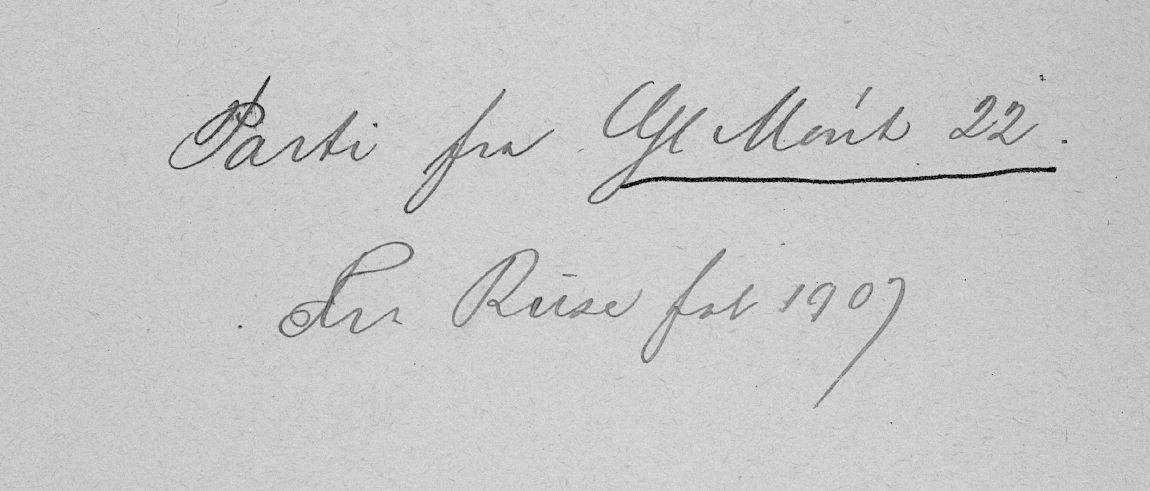 Parti fra Gl Mønt 22.
Fr. Riise fot 1907